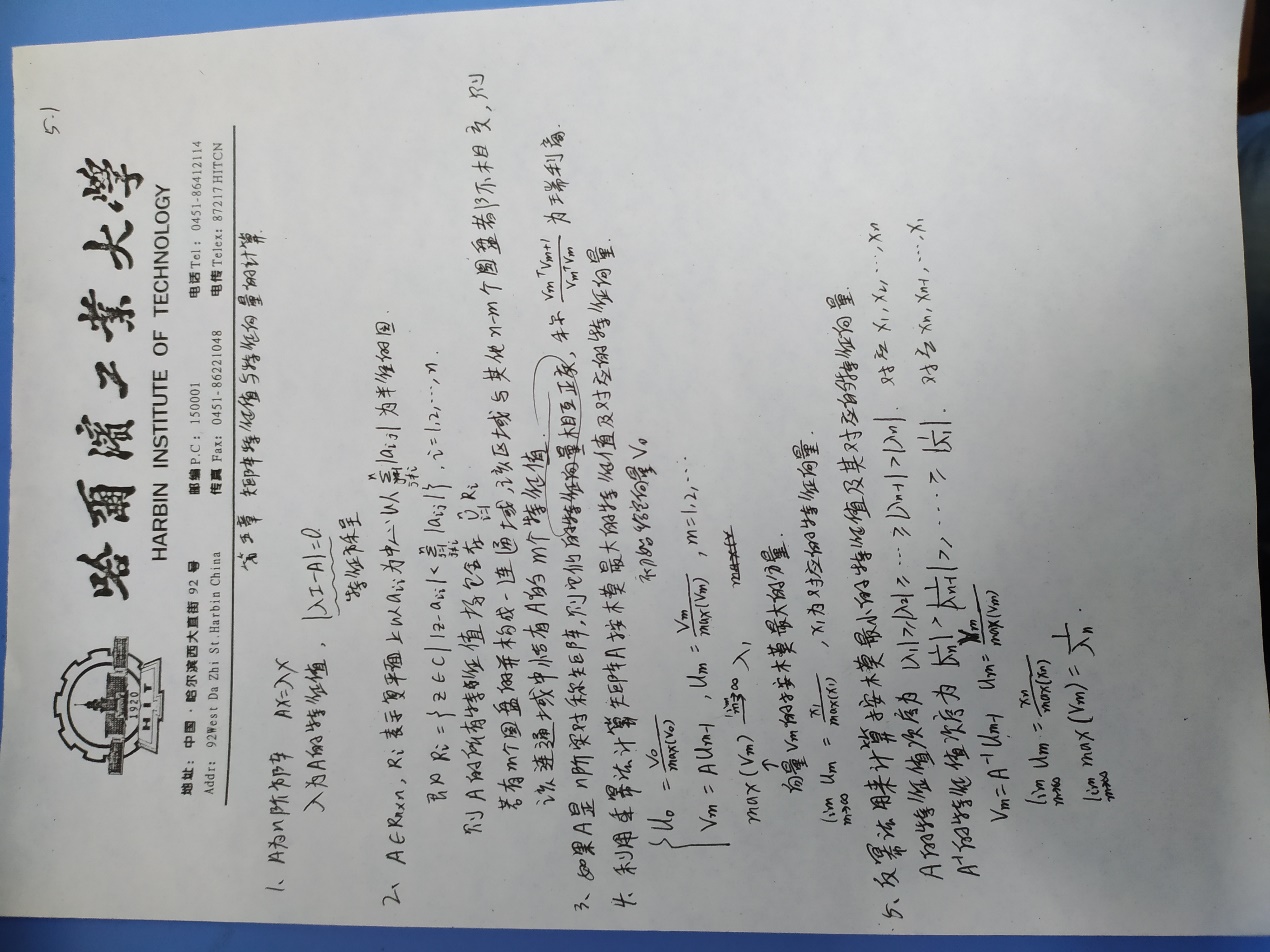 5.1
哈爾濱工業大學
HARBIN INSTITUTE OF TECHNOLOGY
1920
HIT
地址：中国·哈尔滨西大直街 92 号 邮编 P.C: 150001 电话 Tel: 0451-86412114
Addr: 92West Da Zhi St.Harbin China 传真 Fax: 0451-86221048 电传 Telex: 87217HITCN
第五章 矩阵特征值与特征向量的计算.
1、A为n阶矩阵 AX=λX
λ为A的特征值, |λI-A|=0
特征方程
2、A∈Rn×n, Ri表示复平面上以aii为中心以∑(j=1, j≠i)^n |aij|为半径的圆.
即为 Ri={z∈C| |z-aii|<∑(j=1, j≠i)^n |aij|}, i=1,2,…,n.
则A的所有特征值均包含在 ∪(i=1)^n Ri
若有m个圆盘的并构成一连通域,该区域与其他n-m个圆盘都不相交,则
该连通域中恰有A的m个特征值.
3、如果A是n阶实对称矩阵,则它们的特征向量相互正交, 称 Vm^T Vm+1 / Vm^T Vm 为瑞利商.
4、利用幂法计算矩阵A按模最大的特征值及对应的特征向量.
初始给定向量V0
{ U0 = V0/max(V0)
Vm = AUm-1, Um = Vm/max(Vm), m=1,2,…
max(Vm) m→∞ λ1
向量Vm的按模最大的分量.
lim m→∞ Um = x1/max(x1), x1为对应的特征向量.
5、反幂法用来计算按模最小的特征值及其对应的特征向量.
A的特征值次序为 |λ1|≥|λ2|≥…≥|λn-1|>|λn|. 对应 x1,x2,…,xn
A⁻¹的特征值次序为 |1/λn|>|1/λn-1|≥……≥|1/λ1|. 对应 xn,xn-1,…,x1
Vm=A⁻¹Um-1 Um=Vm/max(Vm)
lim m→∞ Um = xn/max(xn)
lim m→∞ max(Vm) = 1/λn